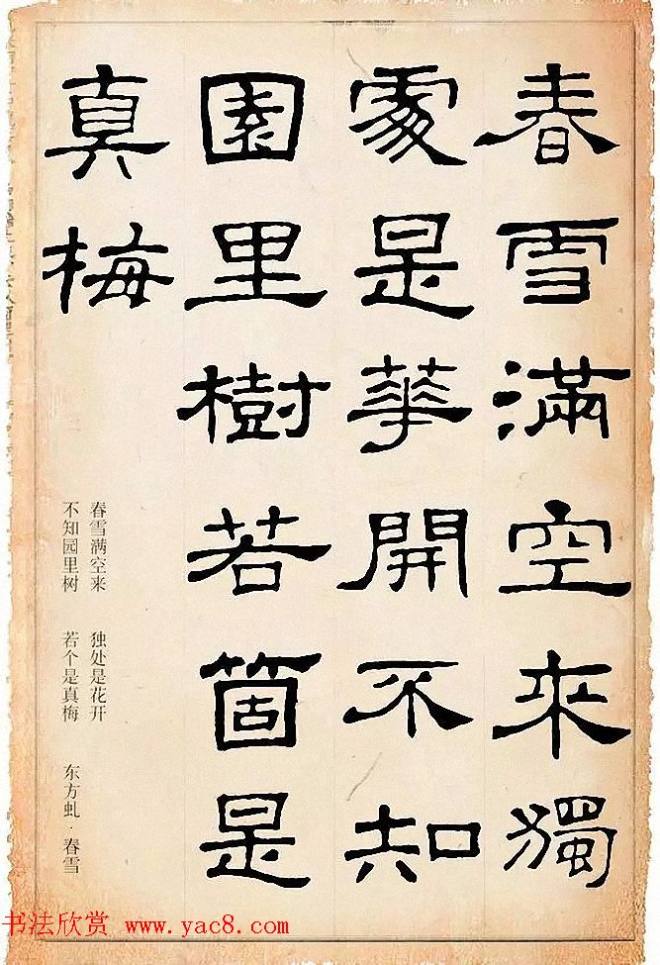 春雪滿空來獨
處是華開不知
園里樹若箇是
真梅
春雪满空来 独处是花开
不知园里树 若个是真梅 东方虬·春雪
书法欣赏 www.yac8.com